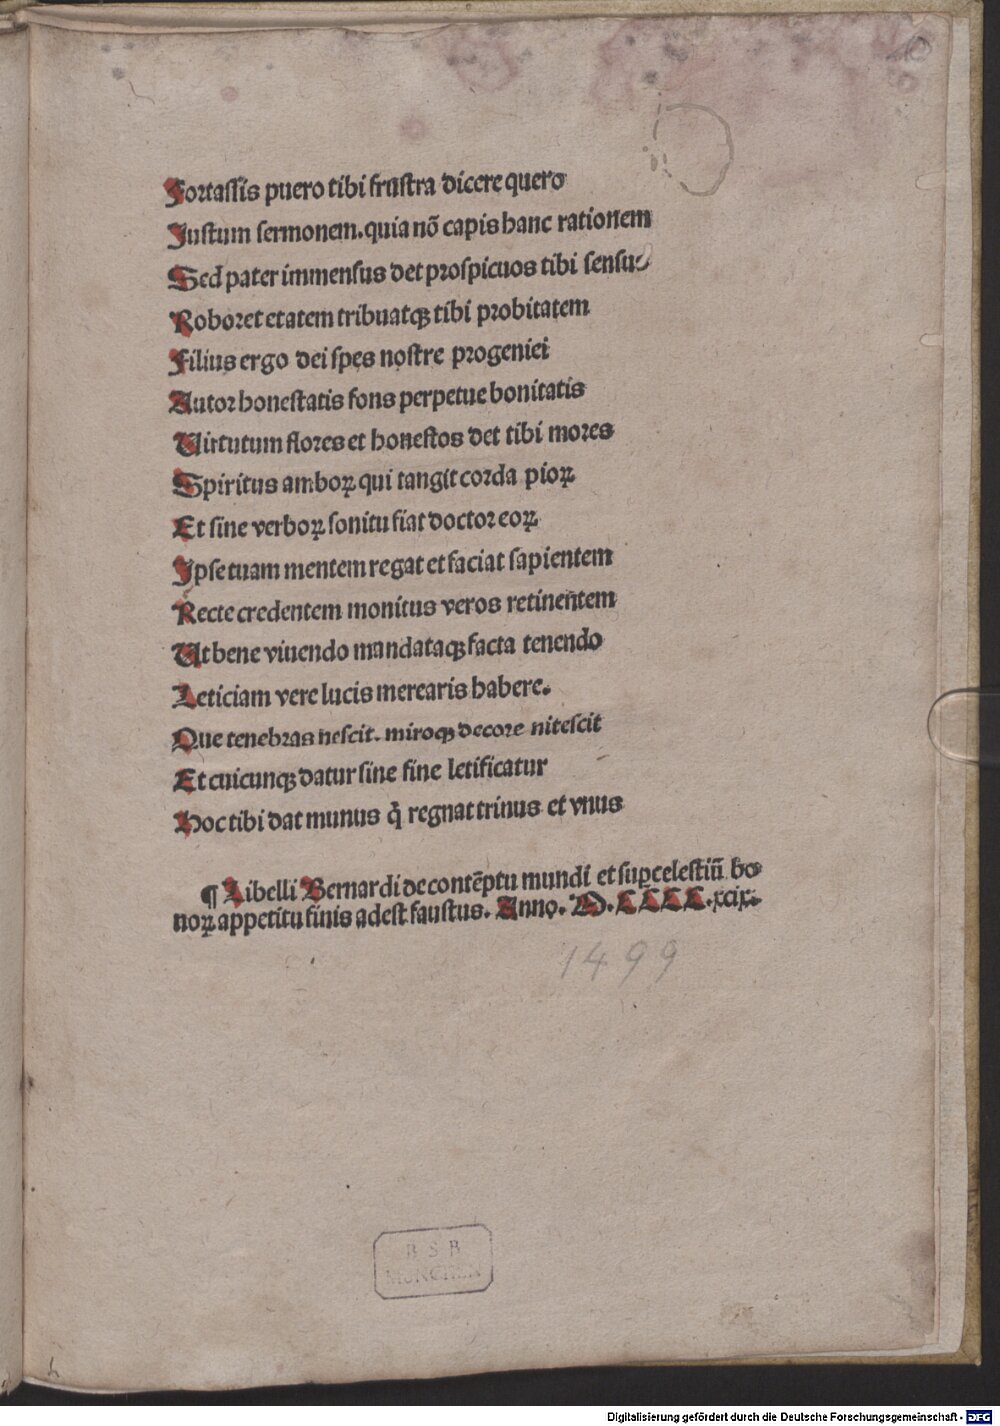 Fortassis puero tibi frustra dicere quero
Justum sermonem. quia nō capis hanc rationem
Sed pater immensus det prospicuos tibi sensus
Roboret etatem tribuatqꝫ tibi probitatem
Filius ergo dei spes nostre progeniei
Autor honestatis fons perpetue bonitatis
Uirtutum flores et honestos det tibi mores
Spiritus amboꝝ qui tangit corda pioꝝ
Et sine verboꝝ sonitu fiat doctor eoꝝ
Ipse tuam mentem regat et faciat sapientem
Recte credentem monitus veros retinentem
Ut bene viuendo mandataqꝫ facta tenendo
Leticiam vere lucis merearis habere.
Que tenebras nescit. miroqꝫ decore nitescit
Et cuicunqꝫ datur sine fine letificatur
Hoc tibi dat munus q̄ regnat trinus et vnus
¶ Libelli Bernardi de contēptu mundi et suꝑcelestiū bo
noꝝ appetitu finis adest faustus. Anno. M.CCCC.xcix.
1499
B S B
MÜNCHEN
Digitalisierung gefördert durch die Deutsche Forschungsgemeinschaft - DFG